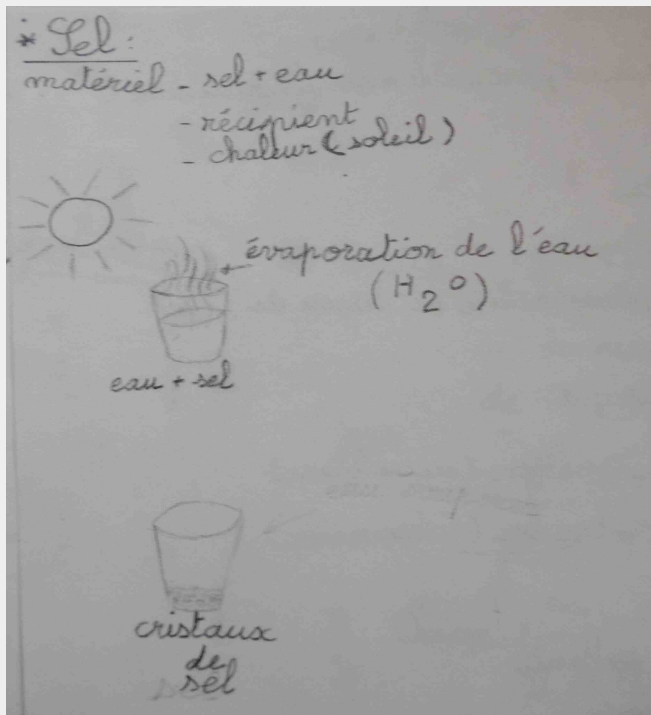 * Sel :
matériel - sel + eau
- récipient
- chaleur (soleil)
évaporation de l'éau
(H₂O)
eau + sel
cristaux
de
sel